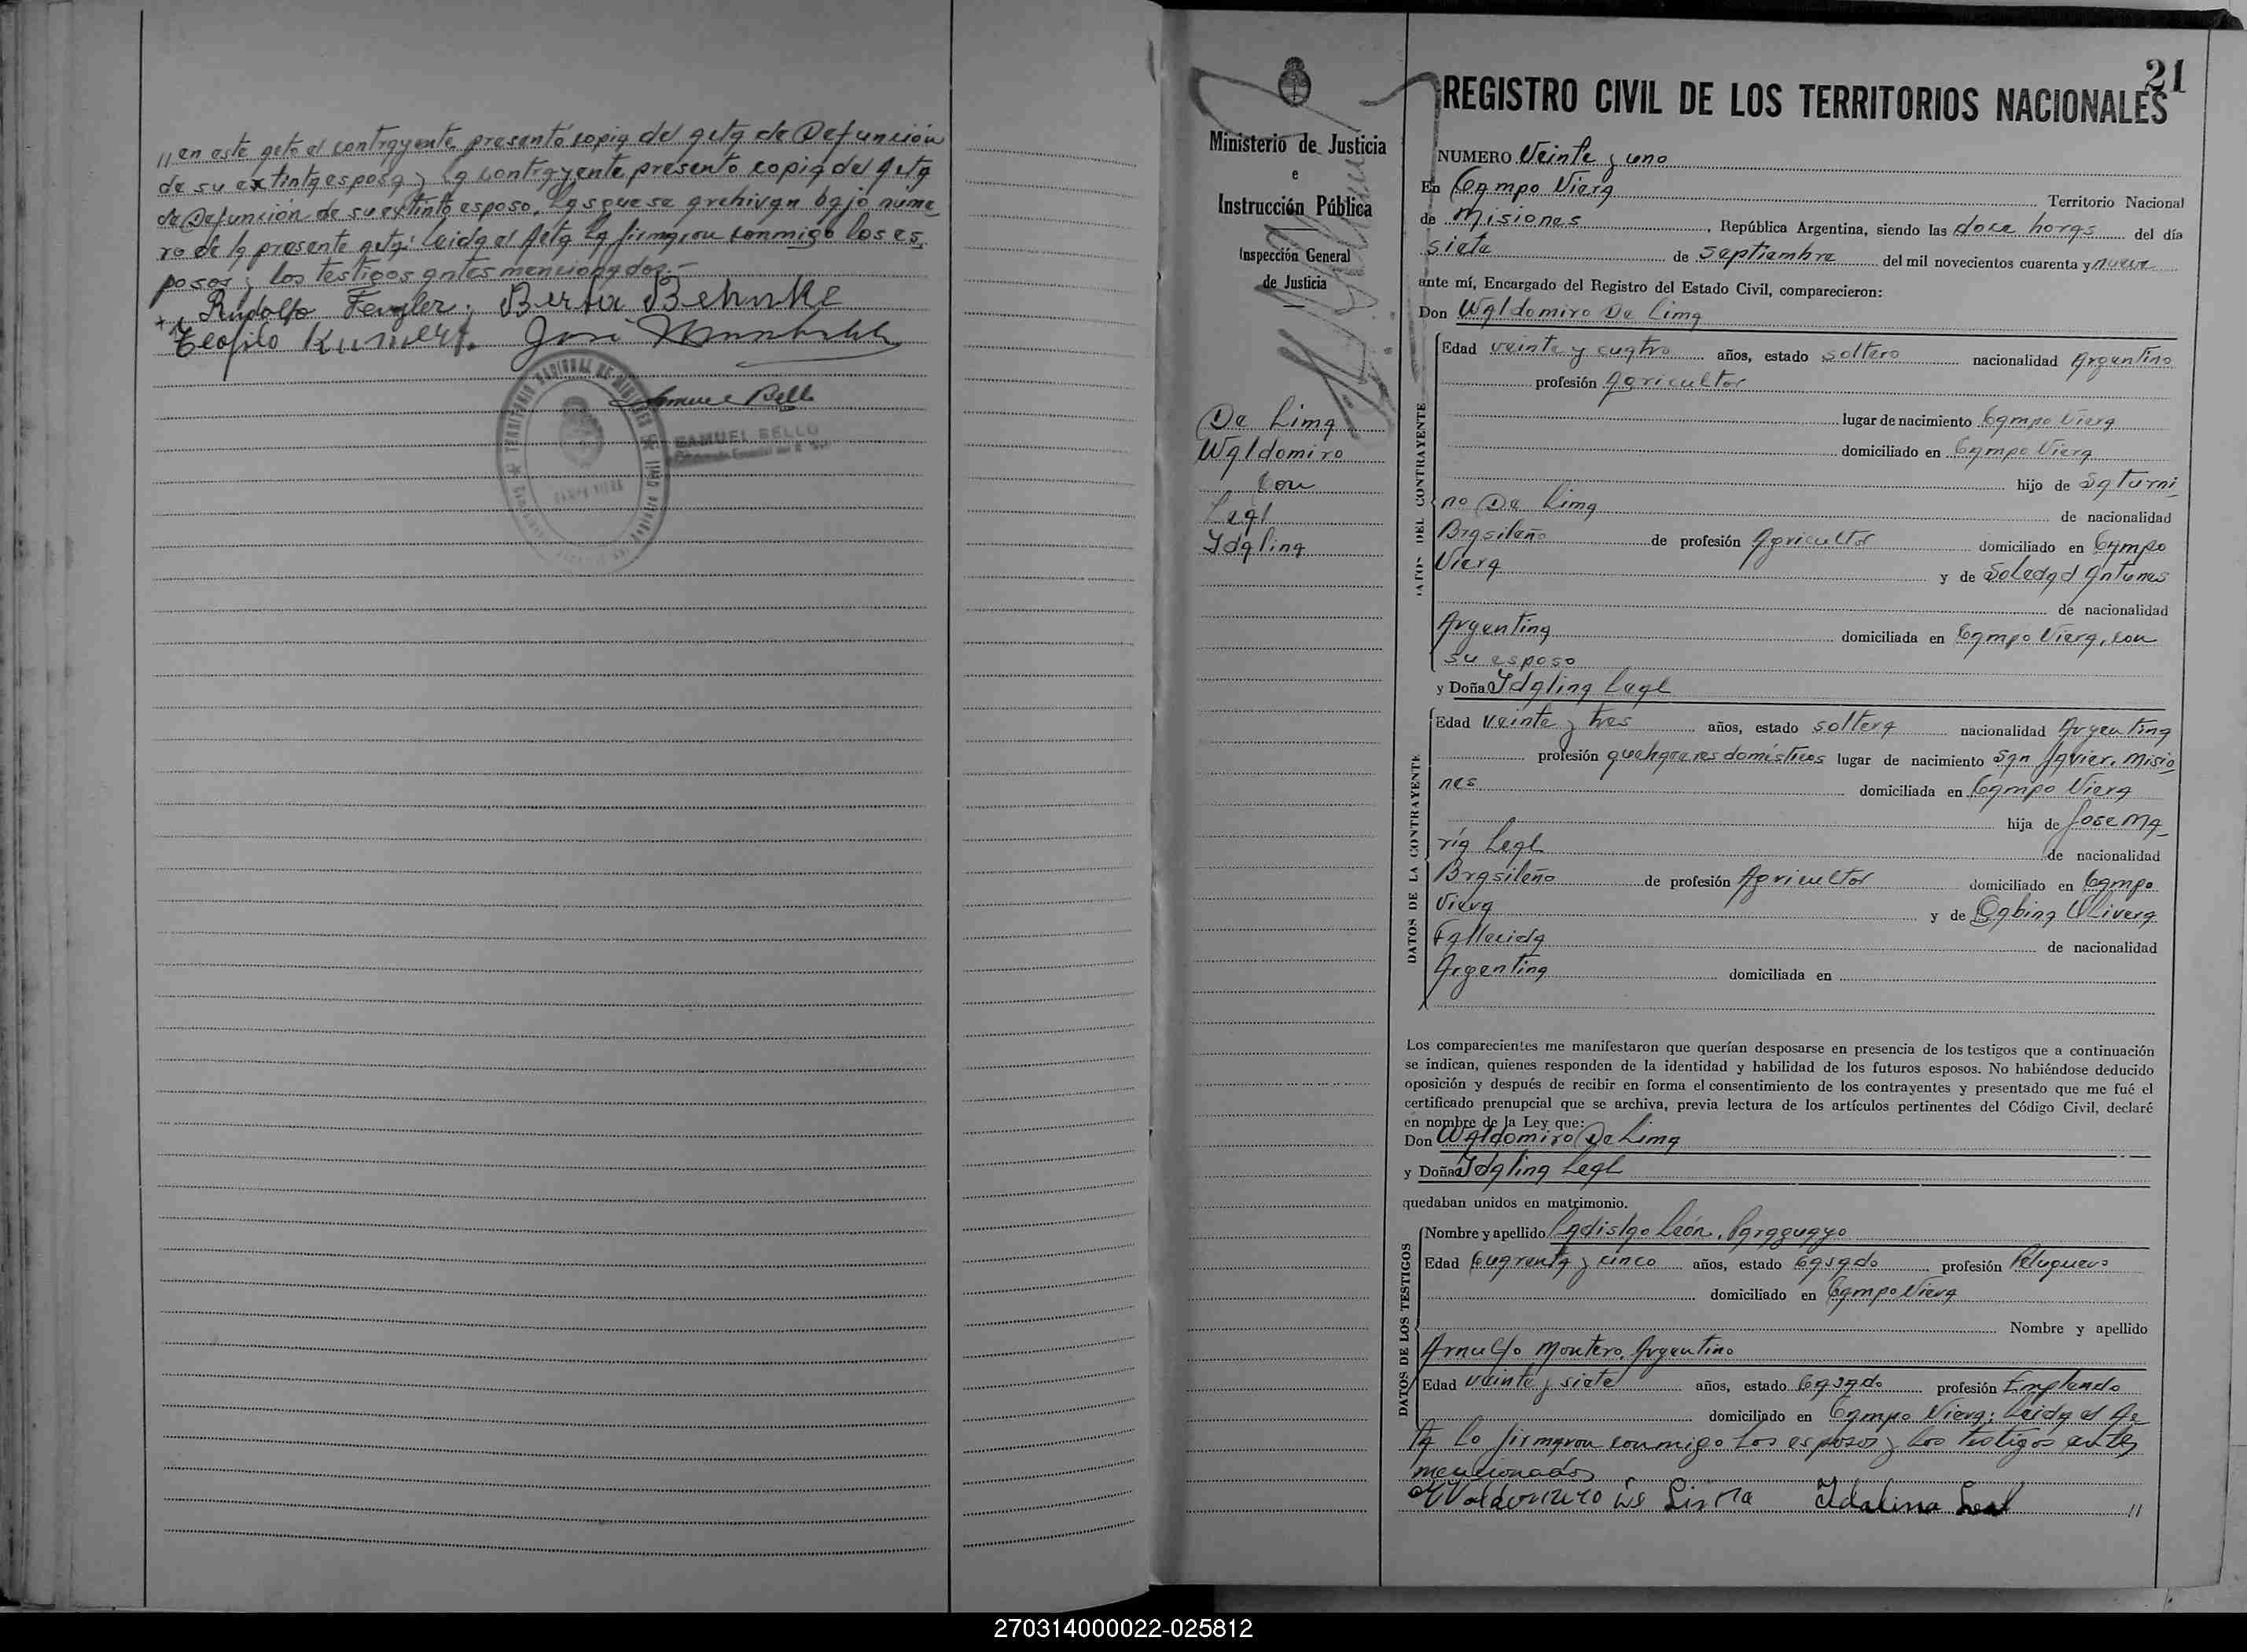 // en este acto el contrayente presentó copia del acta de Defunción
de su extinta esposa y la contrayente presento copia del Acta
de Defunción de su extinto esposo, las que se archivan bajo nume
ro de la presente acta: leida el Acta la firmaron conmigo los es
posos y los testigos antes mencionados.-
Rudolfo Fengler. Berta Behnke
Teofilo José
Samuel Bello
TERRITORIO NACIONAL DE MISIONES
CAMPO VIERA
SAMUEL BELLO
21
Ministerio de Justicia
e
Instrucción Pública
Inspección General
de Justicia
De Lima
Waldomiro
Con
Leal
Idalina
REGISTRO CIVIL DE LOS TERRITORIOS NACIONALES
NUMERO Veinte y uno
En Campo Viera Territorio Nacional
de Misiones, República Argentina, siendo las doce horas del día
siete de Septiembre del mil novecientos cuarenta y nueve
ante mí, Encargado del Registro del Estado Civil, comparecieron:
Don Waldomiro De Lima
DATOS DEL CONTRAYENTE
Edad veinte y cuatro años, estado soltero nacionalidad Argentino
profesión Agricultor
lugar de nacimiento Campo Viera
domiciliado en Campo Viera
hijo de Saturni
no De Lima de nacionalidad
Brasileño de profesión Agricultor domiciliado en Campo
Viera y de Soledad Antunes
de nacionalidad
Argentina domiciliada en Campo Viera, con
su esposo
y Doña Idalina Leal
DATOS DE LA CONTRAYENTE
Edad veinte y tres años, estado soltera nacionalidad Argentina
profesión quehaceres domésticos lugar de nacimiento San Javier, Misio
nes domiciliada en Campo Viera
hija de Jose Ma
ría Leal de nacionalidad
Brasileño de profesión Agricultor domiciliado en Campo
Viera y de Olivera
Fallecida de nacionalidad
Argentina domiciliada en
Los comparecientes me manifestaron que querían desposarse en presencia de los testigos que a continuación
se indican, quienes responden de la identidad y habilidad de los futuros esposos. No habiéndose deducido
oposición y después de recibir en forma el consentimiento de los contrayentes y presentado que me fué el
certificado prenupcial que se archiva, previa lectura de los artículos pertinentes del Código Civil, declaré
en nombre de la Ley que:
Don Waldomiro De Lima
y Doña Idalina Leal
quedaban unidos en matrimonio.
DATOS DE LOS TESTIGOS
Nombre y apellido Ladislao León, Paraguayo
Edad Cuarenta y cinco años, estado Casado profesión Peluquero
domiciliado en Campo Viera
Nombre y apellido
Arnulfo Montero, Argentino
Edad veinte y siete años, estado Casado profesión Empleado
domiciliado en Campo Viera: Leida el Ac
ta la firmaron conmigo los esposos y los testigos antes
mencionados
Waldomiro de Lima Idalina Leal //
270314000022-025812